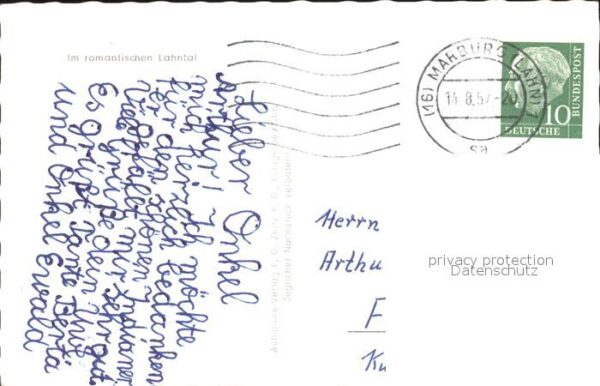 Im romantischen Lahntal
Lieber Onkel
Arthur! Ich möchte
mich herzlich bedanken
für den schönen Indianer.
Er gefällt mir sehr gut.
Viele Grüße dein
Es grüßt Tante Berta
und Onkel Ewald
(16) MARBURG (LAHN) 1
14.8.57.-20
sa
10
DEUTSCHE
BUNDESPOST
Herrn
Arthu
F
Ku
privacy protection
Datenschutz
Jeglicher Nachdruck verboten!